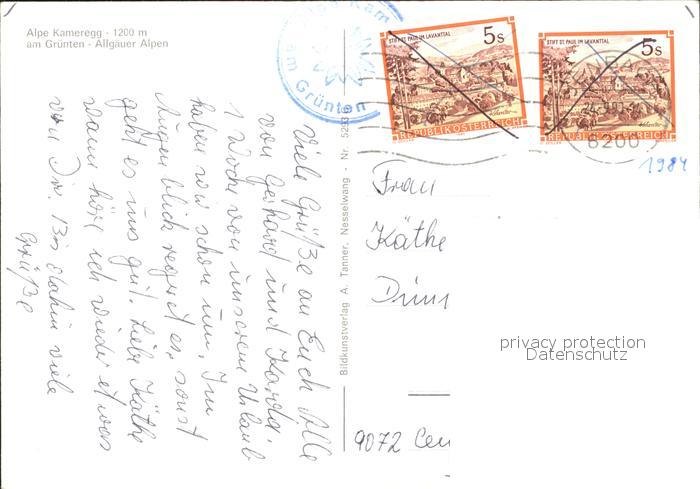 Alpe Kameregg - 1200 m
am Grünten - Allgäuer Alpen
Alpe Kam
am Grünten
STIFT ST. PAUL IM LAVANTTAL
5s
REPUBLIK ÖSTERREICH
STIFT ST. PAUL IM LAVANTTAL
5s
REPUBLIK ÖSTERREICH
8200
1984
Viele Grüße an Euch Alle
von Gerhard und
1 Woche von unserem Urlaub
haben wir schon um. Im
Augenblick regnet es, sonst
geht es uns gut. Liebe Käthe
wann höre ich wieder etwas
von Dir. Bis dahin viele
Grüße
Bildkunstverlag A. Tanner, Nesselwang - Nr. 5293
Frau
Käthe
privacy protection
Datenschutz
9072